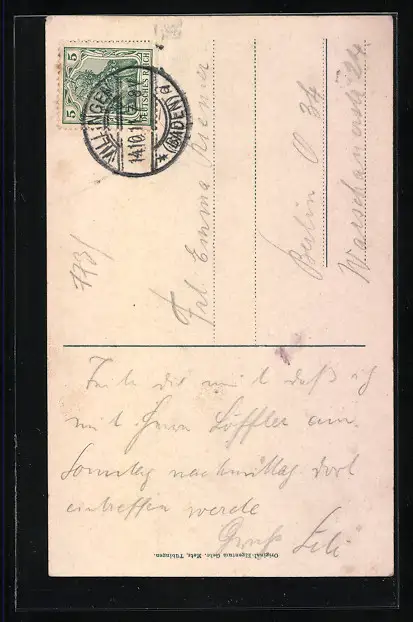 5
5
DEUTSCHES REICH
VILLINGEN
14.10.1
* (BADEN) a
773/
Frl. Emma
Berlin O 34
Warschauerstr 24
Teile dir mit daß ich
mit Herrn Löffler am
Sonntag nachmittag dort
eintreffen werde
Gruß
Original-Eigentum Gebr. Metz, Tübingen.